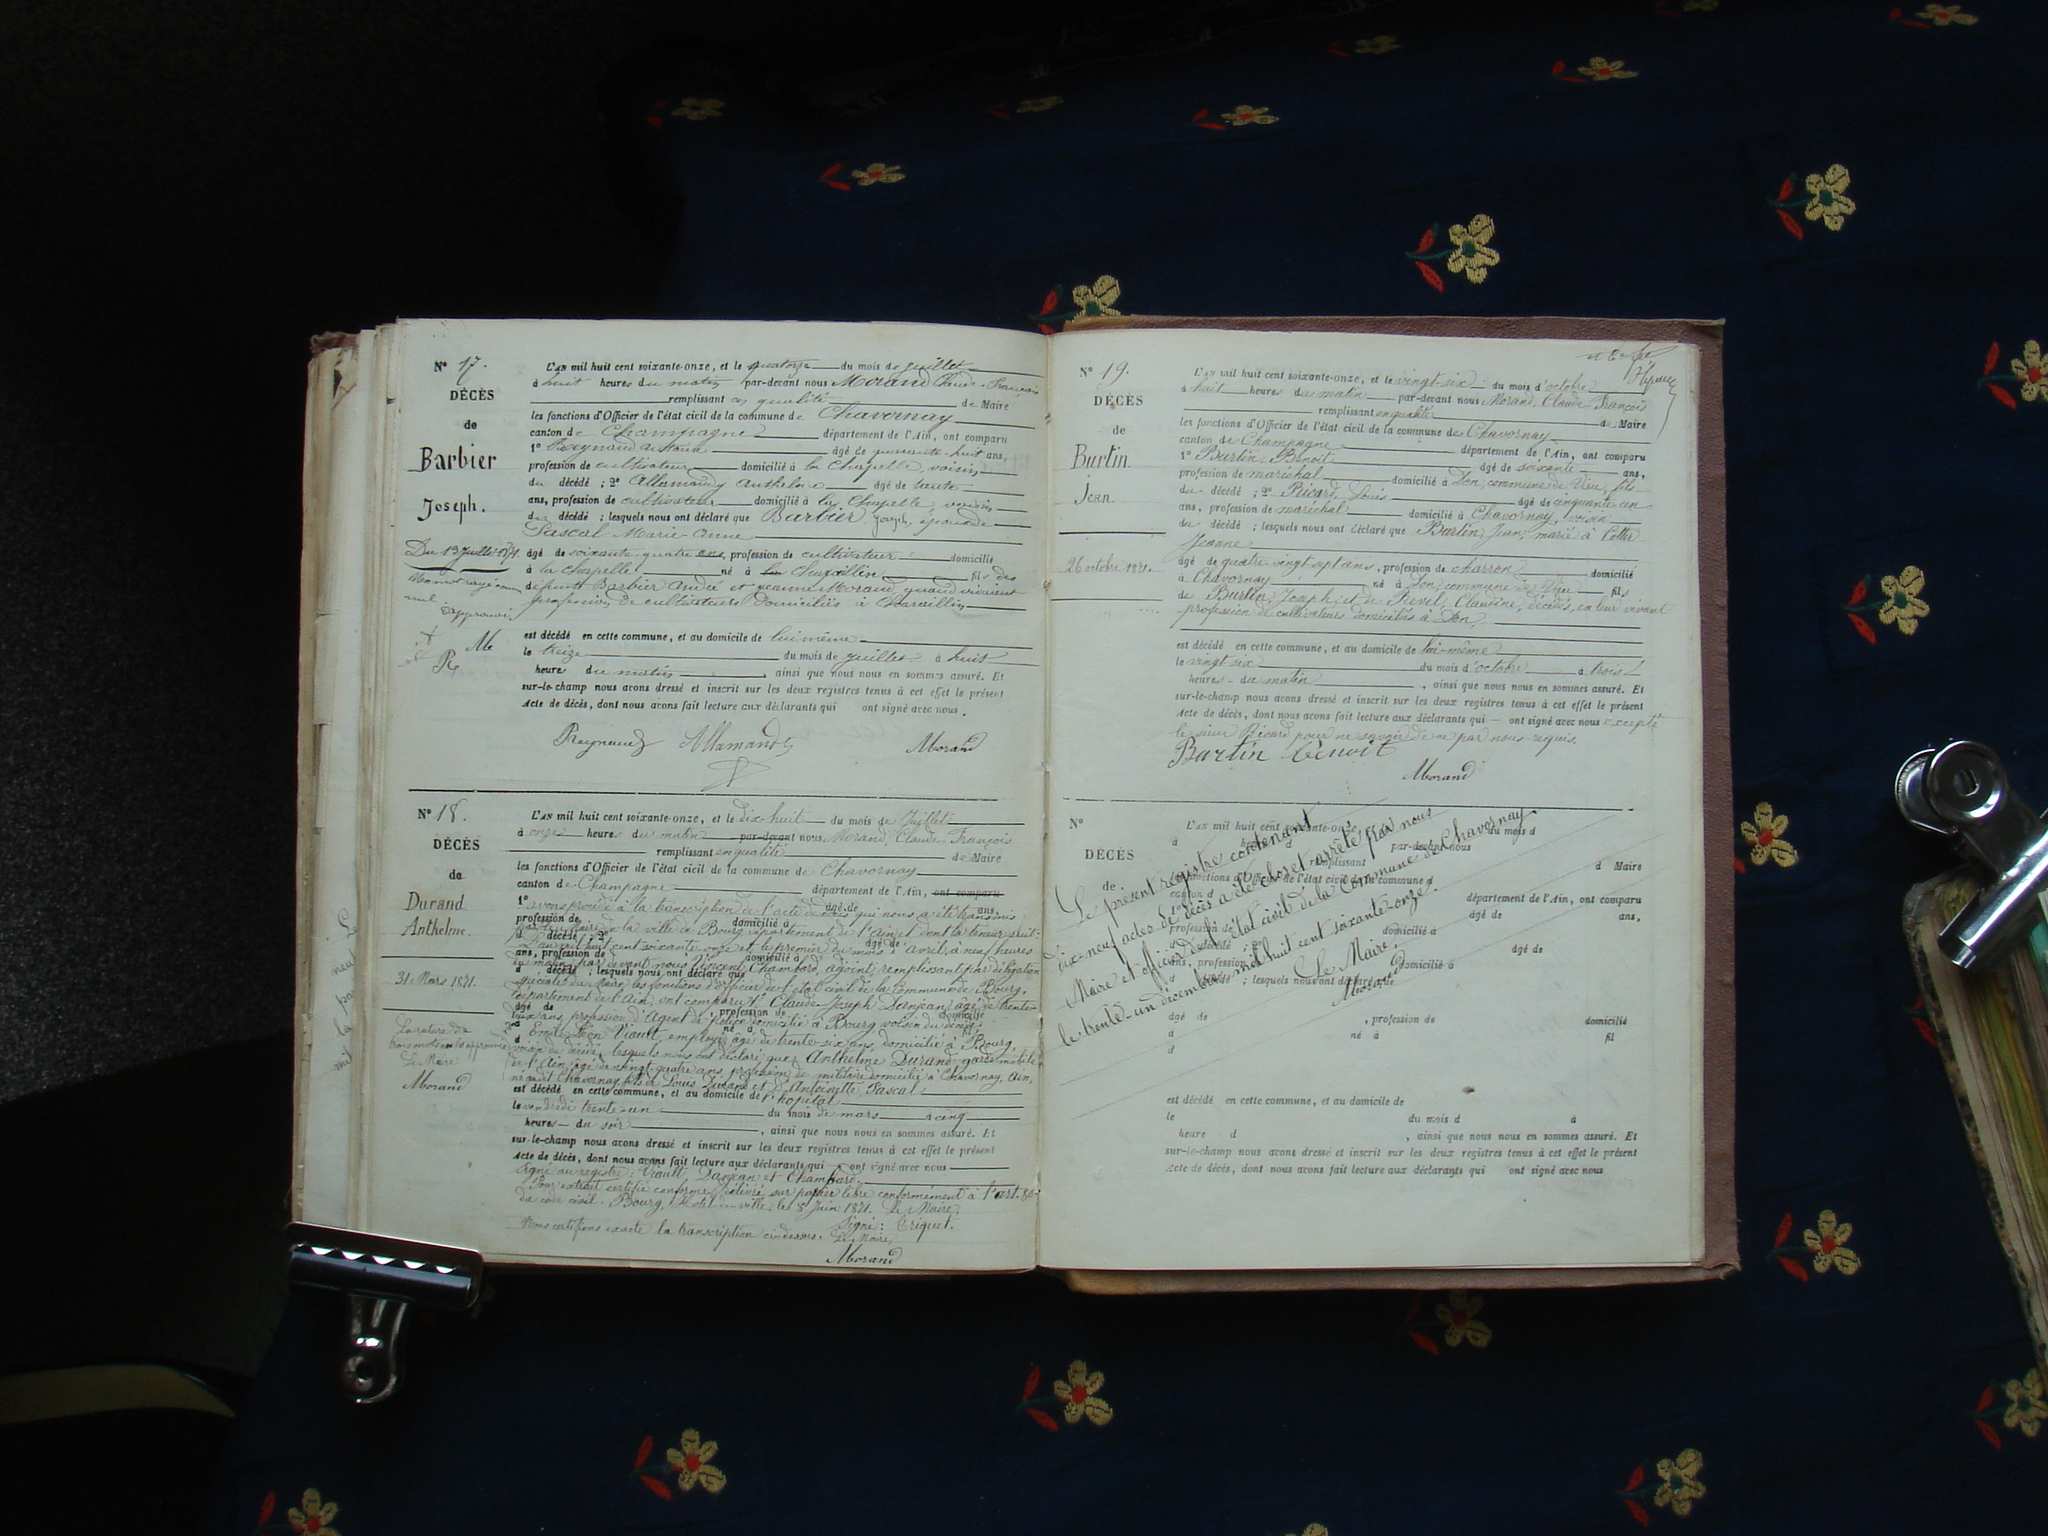 N° 17.
DÉCÈS
de
Barbier
Joseph.
Du 13 Juillet 1871.
approuvé
L'AN mil huit cent soixante-onze, et le quatorze du mois de juillet
à huit heures du matin par-devant nous Morand Claude-François
remplissant en qualité de Maire
les fonctions d'Officier de l'état civil de la commune de Chavornay
canton de Champagne département de l'Ain, ont comparu
1° Reynaud âgé de quarante-huit ans,
profession de cultivateur domicilié à la Chapelle, voisin
du décédé ; 2° Allemand Anthelme âgé de trente
ans, profession de cultivateur domicilié à la Chapelle, voisin
du décédé ; lesquels nous ont déclaré que Barbier Joseph, époux de
Pascal Marie-Anne
âgé de soixante-quatre ans, profession de cultivateur domicilié
à la Chapelle né à fils des
défunts Barbier André et Jeanne Morand quand vivaient
profession de cultivateurs domiciliés à
est décédé en cette commune, et au domicile de lui même
le treize du mois de juillet à huit
heures du matin, ainsi que nous nous en sommes assuré. Et
sur-le-champ nous avons dressé et inscrit sur les deux registres tenus à cet effet le présent
acte de décès, dont nous avons fait lecture aux déclarants qui ont signé avec nous.
Reynaud Allemand Morand
N° 18.
DÉCÈS
de
Durand
Anthelme.
31 Mars 1871.
La rature de
trois mots est approuvée
Le Maire
Morand
L'AN mil huit cent soixante-onze, et le dix-huit du mois de Juillet
à onze heures du matin par-devant nous Morand, Claude-François
remplissant en qualité de Maire
les fonctions d'Officier de l'état civil de la commune de Chavornay
canton de Champagne département de l'Ain, ont comparu
avons procédé à la transcription de l'acte de décès qui nous a été transmis
par le Maire de la ville de Bourg département de l'Ain et dont la teneur suit:
L'an mil huit cent soixante onze et le premier du mois d'avril à neuf heures
du matin, par devant nous Vincent Chambard, adjoint remplissant par délégation
spéciale du Maire les fonctions d'officier de l'état civil de la commune de Bourg,
département de l'Ain, ont comparu 1° Claude Joseph Danjean, âgé de trente-
ans, profession d'Agent de police domicilié à Bourg voisin du décédé,
2° Emile Léon Viault, employé, âgé de trente six ans, domicilié à Bourg,
voisin du décédé, lesquels nous ont déclaré que Anthelme Durand, garde mobile
de l'Ain, âgé de vingt-quatre ans, profession de militaire domicilié à Chavornay, Ain,
né à Chavornay, fils de Louis Durand et d'Antoinette Pascal
est décédé en cette commune, et au domicile de l'hôpital
le vendredi trente-un du mois de mars à cinq
heures du soir, ainsi que nous nous en sommes assuré. Et
sur-le-champ nous avons dressé et inscrit sur les deux registres tenus à cet effet le présent
acte de décès, dont nous avons fait lecture aux déclarants qui ont signé avec nous
Signé au registre: Viault, Danjean et Chambard.
Pour extrait certifié conforme, délivré sur papier libre conformément à l'art. 80
du code civil. Bourg, Hôtel-de-ville, les 8 Juin 1871. Le Maire
Signé: Triquet.
Nous certifions exacte la transcription ci-dessus. Le Maire,
Morand
N° 19.
DÉCÈS
de
Burtin
Jean.
26 octobre 1871.
L'AN mil huit cent soixante-onze, et le vingt-six du mois d'octobre
à huit heures du matin par-devant nous Morand, Claude-François
remplissant en qualité de Maire
les fonctions d'Officier de l'état civil de la commune de Chavornay
canton de Champagne département de l'Ain, ont comparu
1° Burtin, Benoit âgé de soixante ans,
profession de maréchal domicilié à Don, commune de Vieu, fils
du décédé ; 2° Ricard, Louis âgé de cinquante-un
ans, profession de maréchal domicilié à Chavornay, voisin
du décédé ; lesquels nous ont déclaré que Burtin, Jean, marié à
Jeanne
âgé de quatre-vingt-sept ans, profession de charron domicilié
à Chavornay né à Don, commune de Vieu fils
de Burtin, Joseph et de Claudine, décédés, en leur vivant
profession de cultivateurs domiciliés à Don
est décédé en cette commune, et au domicile de lui-même
le vingt-six du mois d'octobre à trois
heures du matin, ainsi que nous nous en sommes assuré. Et
sur-le-champ nous avons dressé et inscrit sur les deux registres tenus à cet effet le présent
acte de décès, dont nous avons fait lecture aux déclarants qui ont signé avec nous excepté
le sieur Ricard pour ne savoir de ce par nous requis.
Burtin benoit
Morand
N°
DÉCÈS
de
L'AN mil huit cent soixante-onze du mois d
par-devant nous
remplissant d Maire
les fonctions d'Officier de l'état civil de la commune d
canton d département de l'Ain, ont comparu
âgé de ans,
profession de domicilié à
d décédé âgé de
ans, profession domicilié à
lesquels nous ont déclaré que
Le présent registre contenant
dix-neuf actes de décès a été clos et arrêté par nous
Maire et officier de l'état civil de la Commune de Chavornay
le trente-un décembre mil huit cent soixante-onze.
Le Maire,
Morand
âgé de , profession de domicilié
à né à fil
d
est décédé en cette commune, et au domicile de
le du mois d à
heure d , ainsi que nous nous en sommes assuré. Et
sur-le-champ nous avons dressé et inscrit sur les deux registres tenus à cet effet le présent
acte de décès, dont nous avons fait lecture aux déclarants qui ont signé avec nous